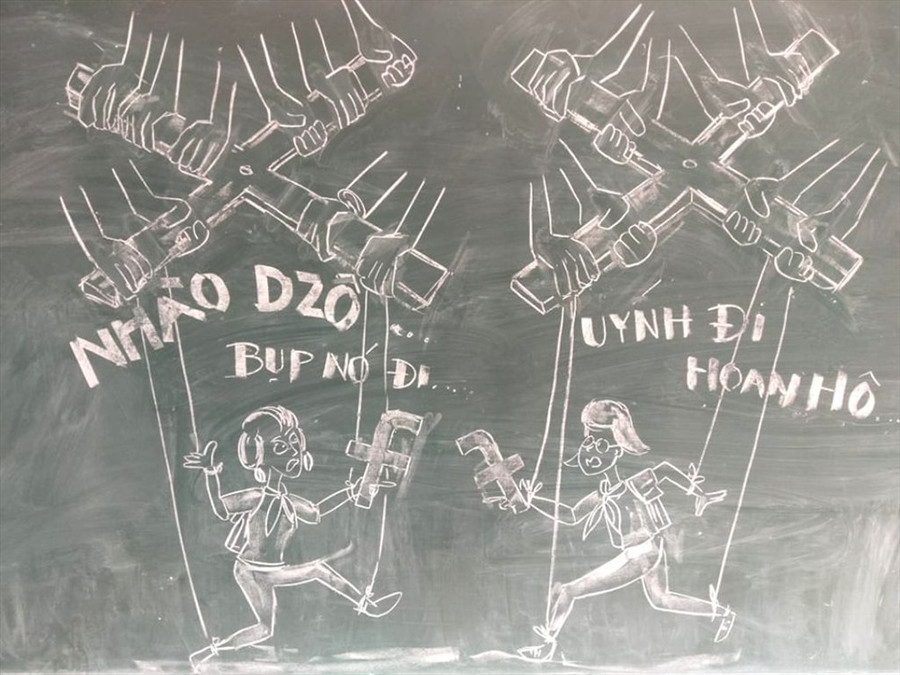 NHÀO DZÔ...
BỤP NÓ ĐI...
UYNH ĐI
HOAN HÔ...
f
f